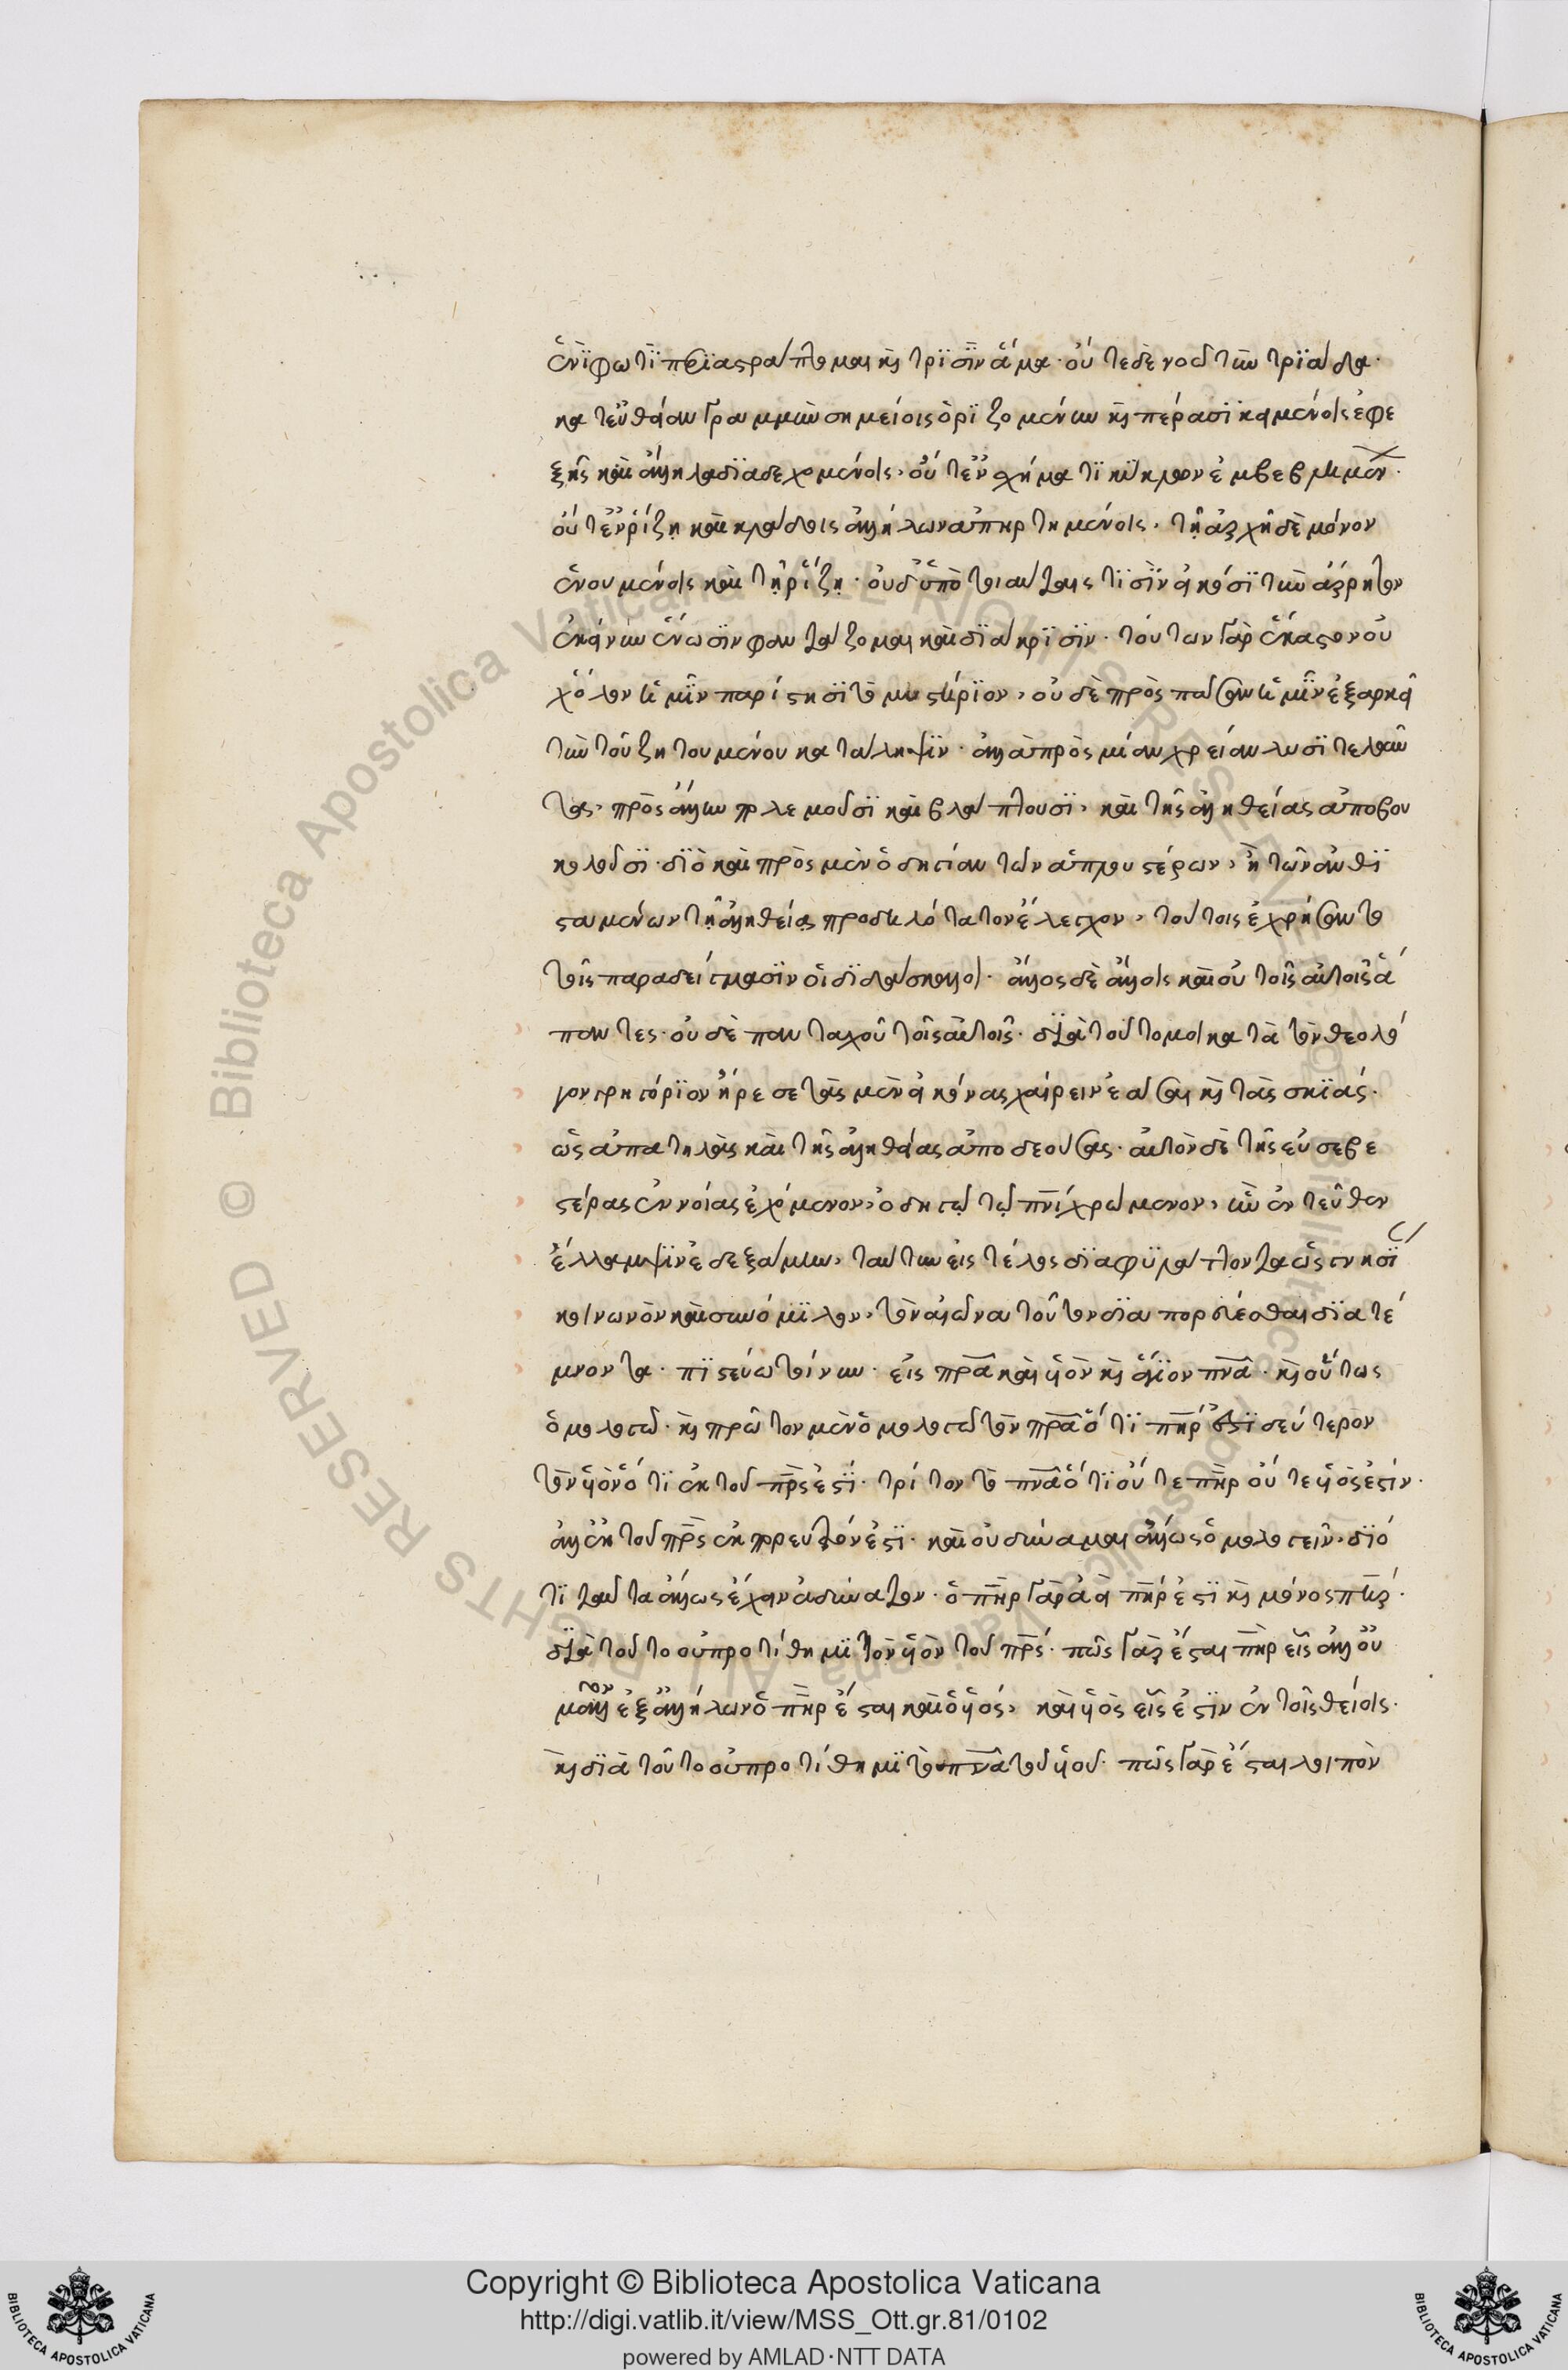 ἑνὶ φωτὶ περιαστράπτομαι καὶ τρισὶν ἅμα· οὔτε δὲ νοῶ τὴν τριάδα·
κατ' εὐθεῖαν γραμμὴν σημείοις ὁριζομένην καὶ πέρασι κειμένοις ἐφε
ξῆς καὶ ἄλληλα διαδεχομένοις, οὔτ' ἐν σχήματι
οὔτ' ἐν ῥίζῃ καὶ κλάδοις ἀλλήλων ἀπηρτημένοις, τῇ ἀρχῇ δὲ μόνον
ἑνουμένοις καὶ τῇ ῥίζῃ· οὐδ' ὑπὸ τοιαύταις τισὶν εἰκόσι τὴν ἄρρητον
ἐκείνην ἕνωσιν φαντάζομαι καὶ διάκρισιν· τούτων γὰρ ἕκαστον οὐ
χ' ὅλον ἡμῖν παρίστησι τὸ μυστήριον, οὐδὲ πρὸς πᾶσαν ἡμῖν ἐξαρκεῖ
τὴν τοῦ ζητουμένου κατάληψιν· ἀλλὰ πρὸς μίαν χρείαν λυσιτελοῦν
τα, πρὸς ἄλλην πολεμοῦσι καὶ βλάπτουσι, καὶ τῆς ἀληθείας ἀποβου
κολοῦσι· διὸ καὶ πρὸς μὲν ὁδηγίαν τῶν ἁπλουστέρων, ἢ τῶν ἀνθι
σταμένων τῇ ἀληθείᾳ προδηλότατον ἔλεγχον, τούτοις ἐχρήσαντο
τοῖς παραδείγμασιν οἱ διδάσκαλοι· ἄλλος δὲ ἄλλοις καὶ οὐ τοῖς αὐτοῖς ἅ
παντες· οὐδὲ πανταχοῦ τοῖς αὐτοῖς· διὰ τοῦτό μοι κατὰ τὸν θεολό
γον γρηγόριον ἤρεσε τὰς μὲν εἰκόνας χαίρειν ἐᾶσαι καὶ τὰς σκιάς·
ὡς ἀπατηλὰς καὶ τῆς ἀληθείας ἀποδεούσας· αὐτὸν δὲ τῆς εὐσεβε
στέρας ἐννοίας ἐχόμενον, ὁδηγῷ τῷ πνι χρώμενον, ἣν ἐντεῦθεν
ἔλλαμψιν ἐδεξάμην, ταύτην εἰς τέλος διαφυλάττοντα ὡς γνησί
κοινωνὸν καὶ συνόμιλον, τὸν αἰῶνα τοῦτον διαπορεύεσθαι διατέ
μνοντα· πιστεύω τοίνυν· εἰς πρα καὶ υἱὸν καὶ ἅγιον πνα· καὶ οὕτως
ὁμολογῶ· καὶ πρῶτον μὲν ὁμολογῶ τὸν πρα ὅτι πηρ ἐστι δεύτερον
τὸν υἱὸν ὅτι ἐκ τοῦ πρς ἐστί· τρίτον τὸ πνα ὅτι οὔτε πηρ οὔτε υἱός ἐστίν·
ἀλλ' ἐκ τοῦ πρς ἐκπορευτόν ἐστι· καὶ οὐ δύναμαι ἄλλως ὁμολογεῖν, διό
τι ταῦτα ἄλλως ἔχειν ἀδύνατον· ὁ πηρ γὰρ ἀεὶ πηρ ἐστι καὶ μόνος πηρ·
διὰ τοῦτο οὐ προτίθημι τὸν υἱὸν τοῦ πρς· πῶς γὰρ ἔσται πηρ εἷς ἀλλ' οὐ
μᾶλλον ἐξ ἀλλήλων ὁ πηρ ἔσται καὶ ὁ υἱός, καὶ υἱὸς εἷς ἐστιν ἐν τοῖς θείοις·
καὶ διὰ τοῦτο οὐ προτίθημι τὸ πνα τοῦ υἱοῦ· πῶς γὰρ ἔσται λοιπὸν
Copyright © Biblioteca Apostolica Vaticana
http://digi.vatlib.it/view/MSS_Ott.gr.81/0102
powered by AMLAD·NTT DATA